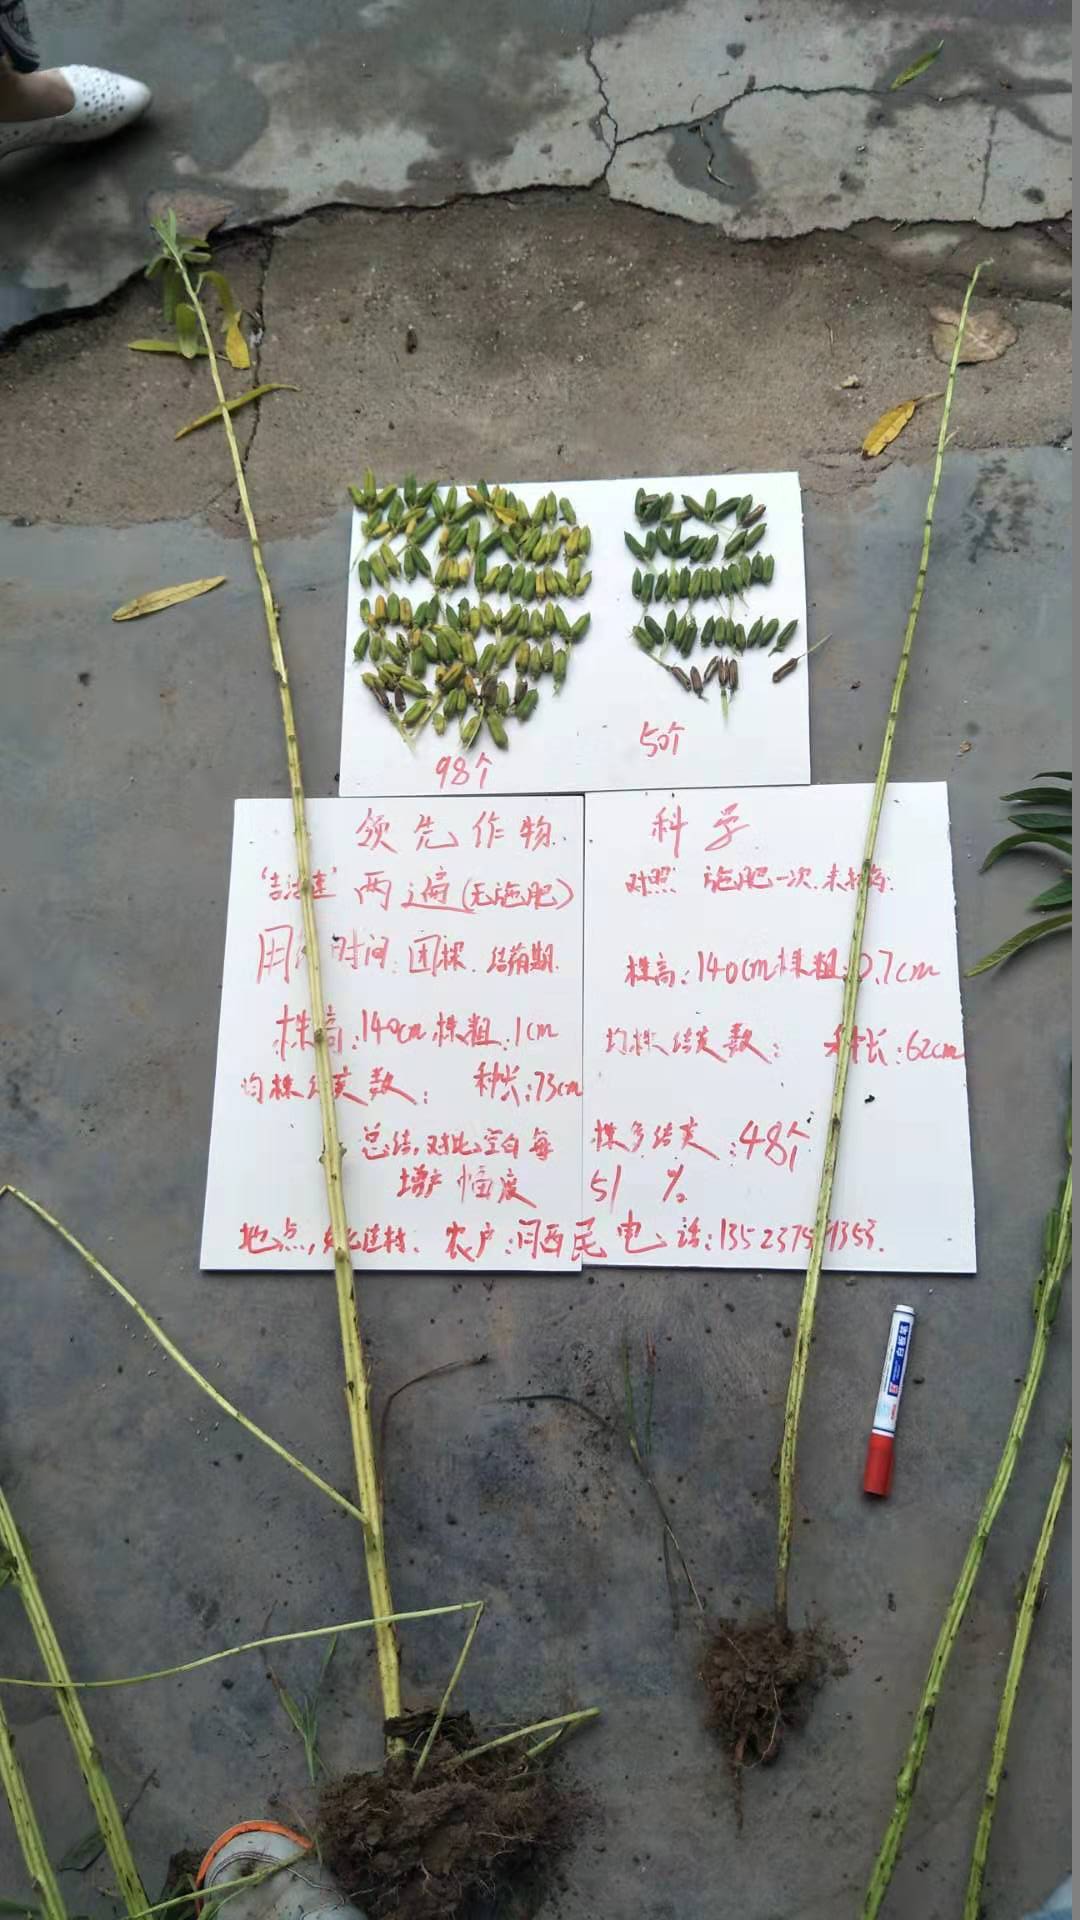 98个
50个
领先作物 科学
两遍(无施肥)
对照 施肥一次.
时间: 团棵. 结荫期.
株高:140cm株粗:1cm
株高:140cm株粗:0.7cm
均株结实数: 种长:73cm
均株结实数: 种长:62cm
总结,对比空白每株多结实:48个
增产幅度 51 %
地点, 农户:闫西民 电话:
白板笔